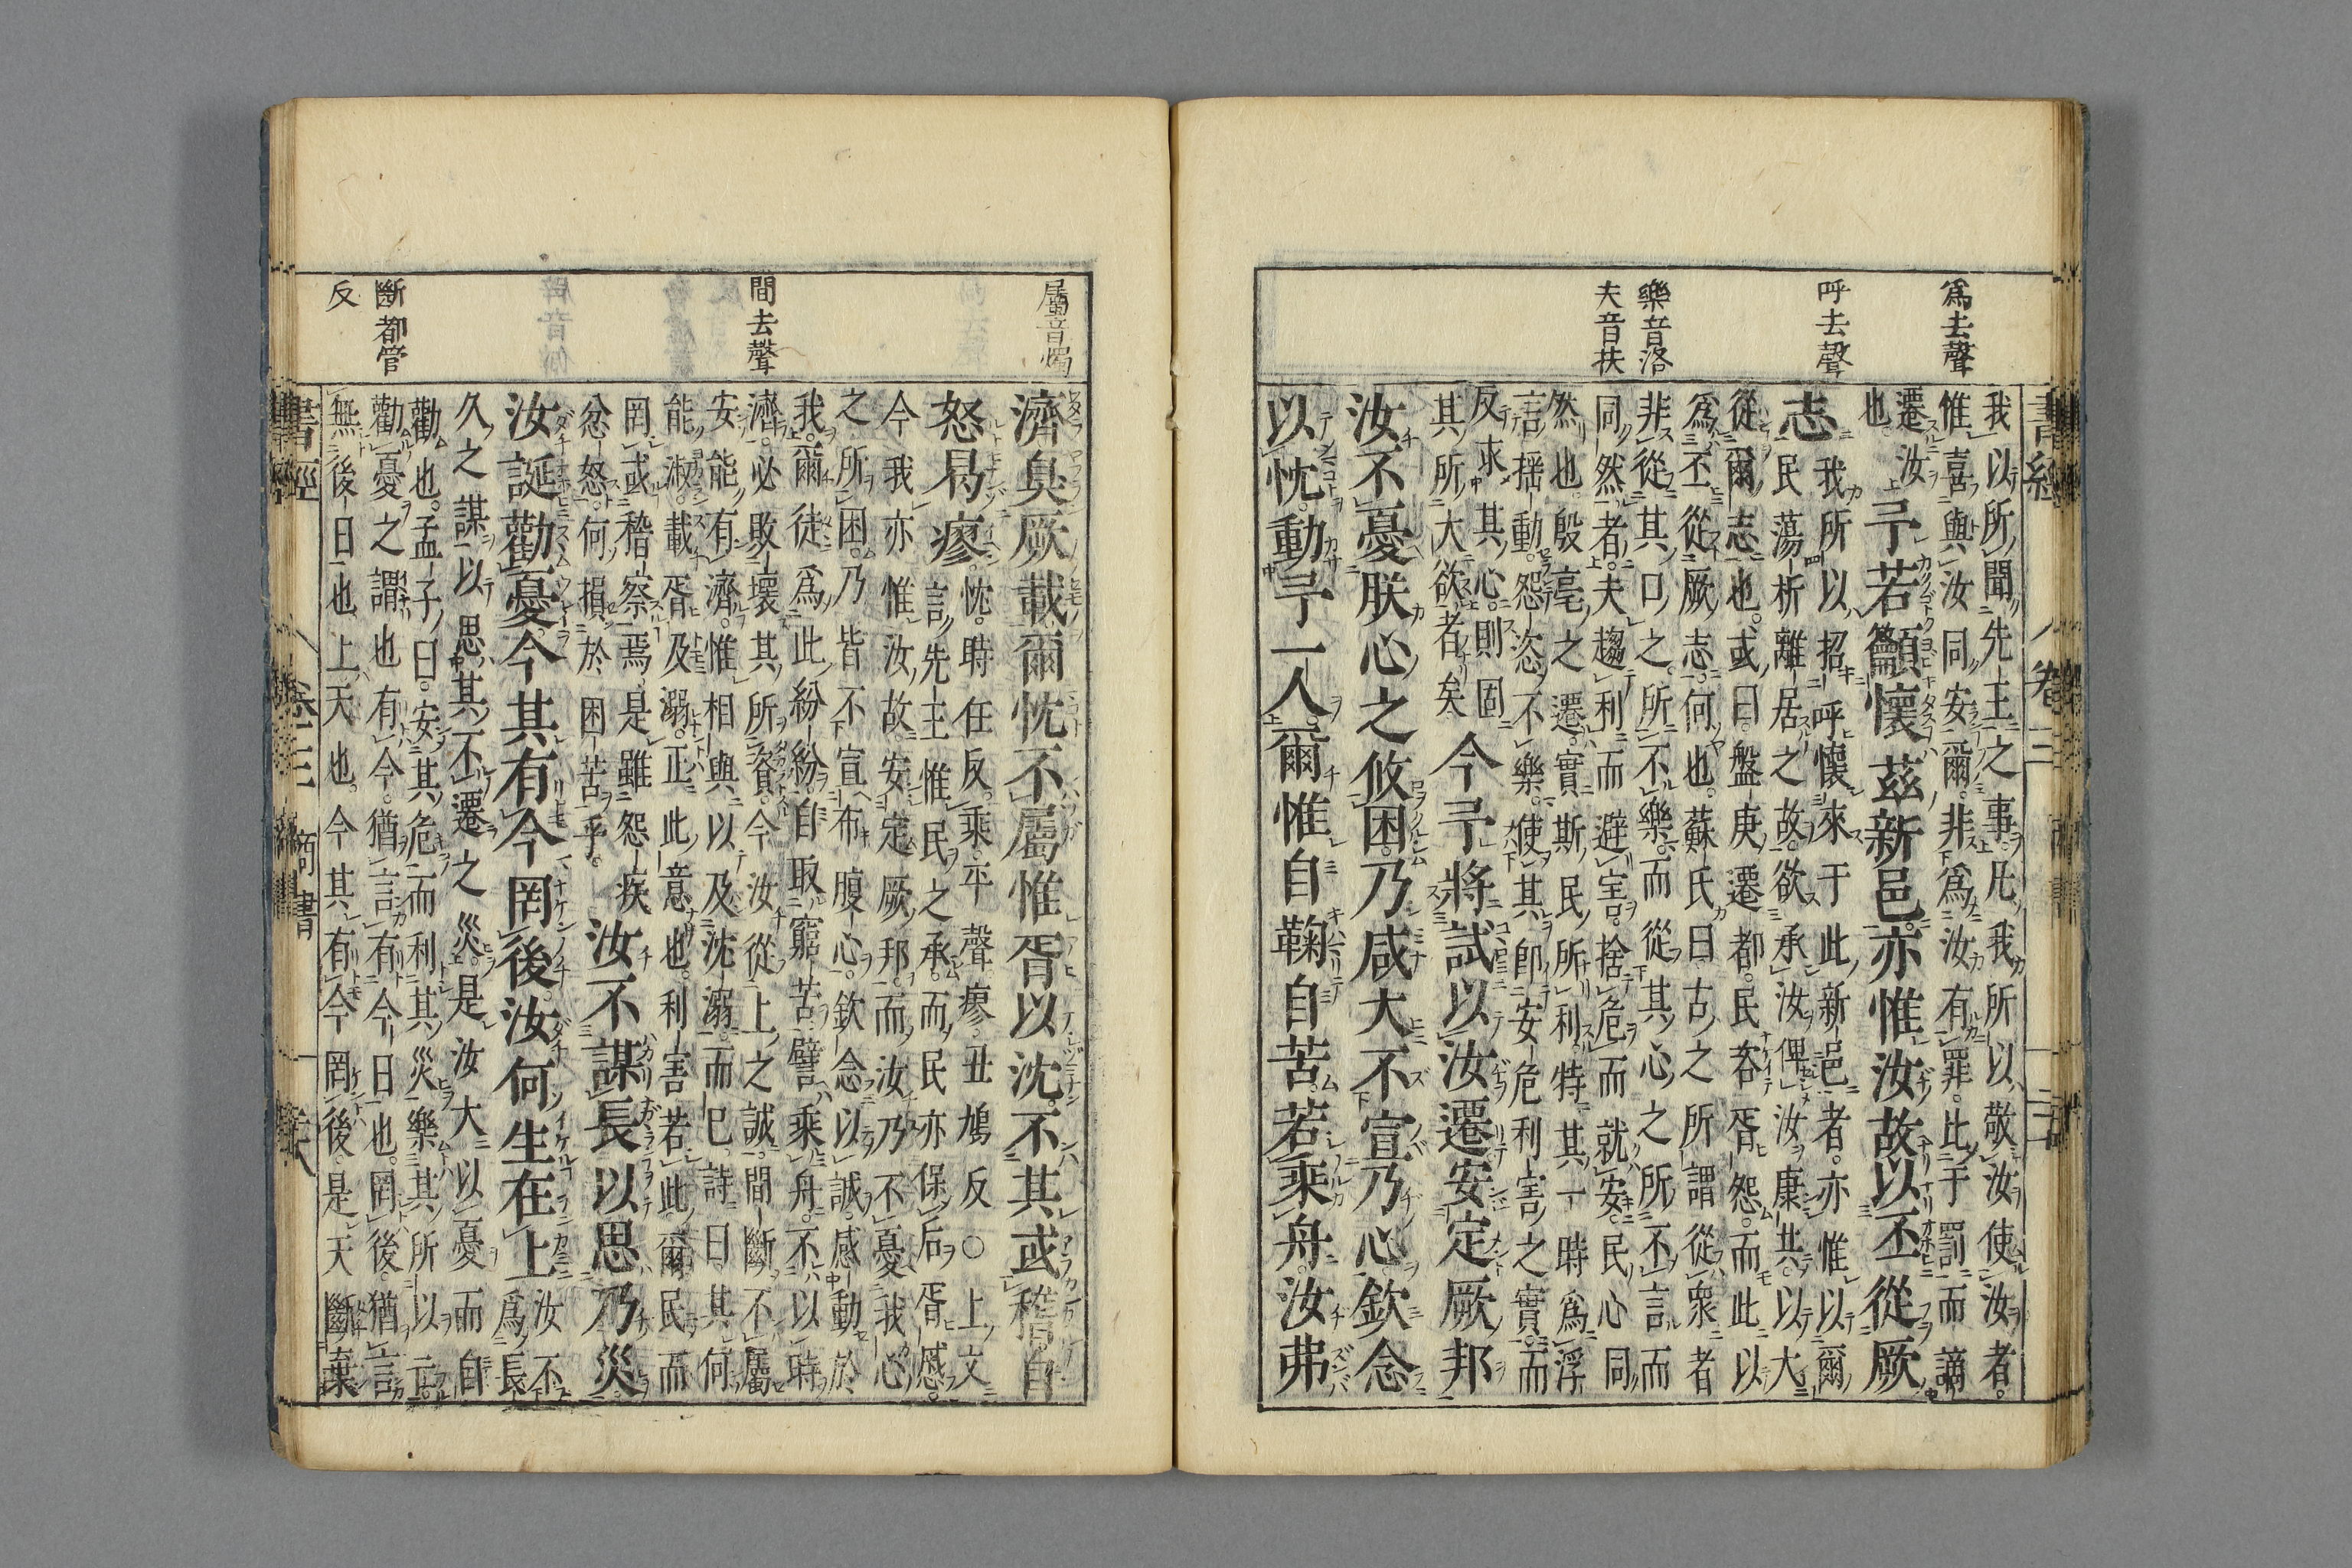 爲去聲
呼去聲
樂音洛
夫音扶
書經 卷三 商書
我以所聞先王之事。凡我所以敬汝使汝者。
惟喜與汝同安爾。非爲汝有罪。比于罰而謫
遷汝
也。
予若籲懷茲新邑。亦惟汝故。以丕從厥
志 我所以招呼懷來于此新邑者。亦惟以爾
民蕩析離居之故。欲承汝俾汝康共。以大
從爾志也。或曰。盤庚遷都。民咨胥怨。而此以
爲丕從厥志。何也。蘇氏曰。古之所謂從衆者
非從其口之所不樂。而從其心之所不言而
同然者。夫趨利而避害。捨危而就安。民心同
然也。殷亳之遷。實斯民所利。特其一時爲浮
言搖動。怨恣不樂。使其即安危利害之實。而
反求其心。則固
其所大欲者矣
今予將試以汝遷。安定厥邦
汝不憂朕心之攸困。乃咸大不宣乃心。欽念
以忱。動予一人。爾惟自鞠自苦。若乘舟。汝弗
屬音燭
間去聲
斷都管
反
濟。臭厥載。爾忱不屬。惟胥以沈。不其或稽。自
怒曷瘳。
忱。時任反。乘。平聲。瘳。丑鳩反〇上文
言先王惟民之承。而民亦保后胥慼。
今我亦惟汝故。安定厥邦。而汝乃不憂我心
之所困。乃皆不宣布腹心。欽念以誠。感動於
我。爾徒爲此紛紛。自取窮苦。譬乘舟。不以時
濟。必敗壞其所資。今汝從上之誠。間斷不屬
安能有濟。惟相與以及沈溺而已。詩曰。其何
能淑。載胥及溺。正此意也。利害若此。爾民而
罔或稽察焉。是雖怨疾
忿怒。何損於困苦乎。
汝不謀長。以思乃災
汝誕勸憂。今其有今罔後。汝何生在上
汝不
爲長
久之謀。以思其不遷之災。是汝大以憂而自
勸也。孟子曰。安其危而利其災。樂其所以亡。
勸憂之謂也。有今。猶言有今日也。罔後。猶言
無後日也。上。天也。今其有今罔後。是天斷棄
書經 卷三 商書